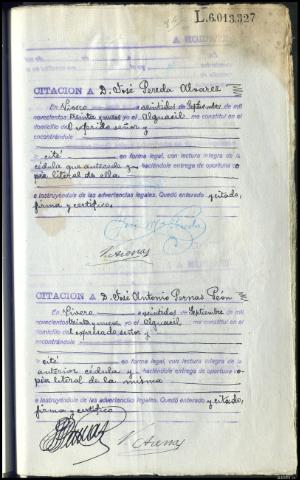 L.6.013.327
CITACION A D. José Pereda Alvarez
En Vivero veintidos de Septiembre de mil
novecientos treinta y nueve yo el Alguacil, me constitui en el
domicilio del expresado señor y
encontrándole
cité en forma legal, con lectura integra de la
cédula que antecede y haciéndole entrega de oportuna co-
pia literal de ella
e instruyéndole de las advertencias legales. Quedó enterado y citado,
firma y certifico.
José Pereda
V. Arenas
CITACION A D. José Antonio Pernas Peón
En Vivero veintidos de Septiembre de mil
novecientos treinta y nueve yo el Alguacil me constitui en el
domicilio del expresado señor y
encontrándole
cité en forma legal, con lectura integra de la
anterior cédula y haciéndole entrega de oportuna co-
pia literal de la misma
e instruyéndole de las advertencias legales. Quedó enterado y citado,
firma y certifico
Pernas
V. Arenas